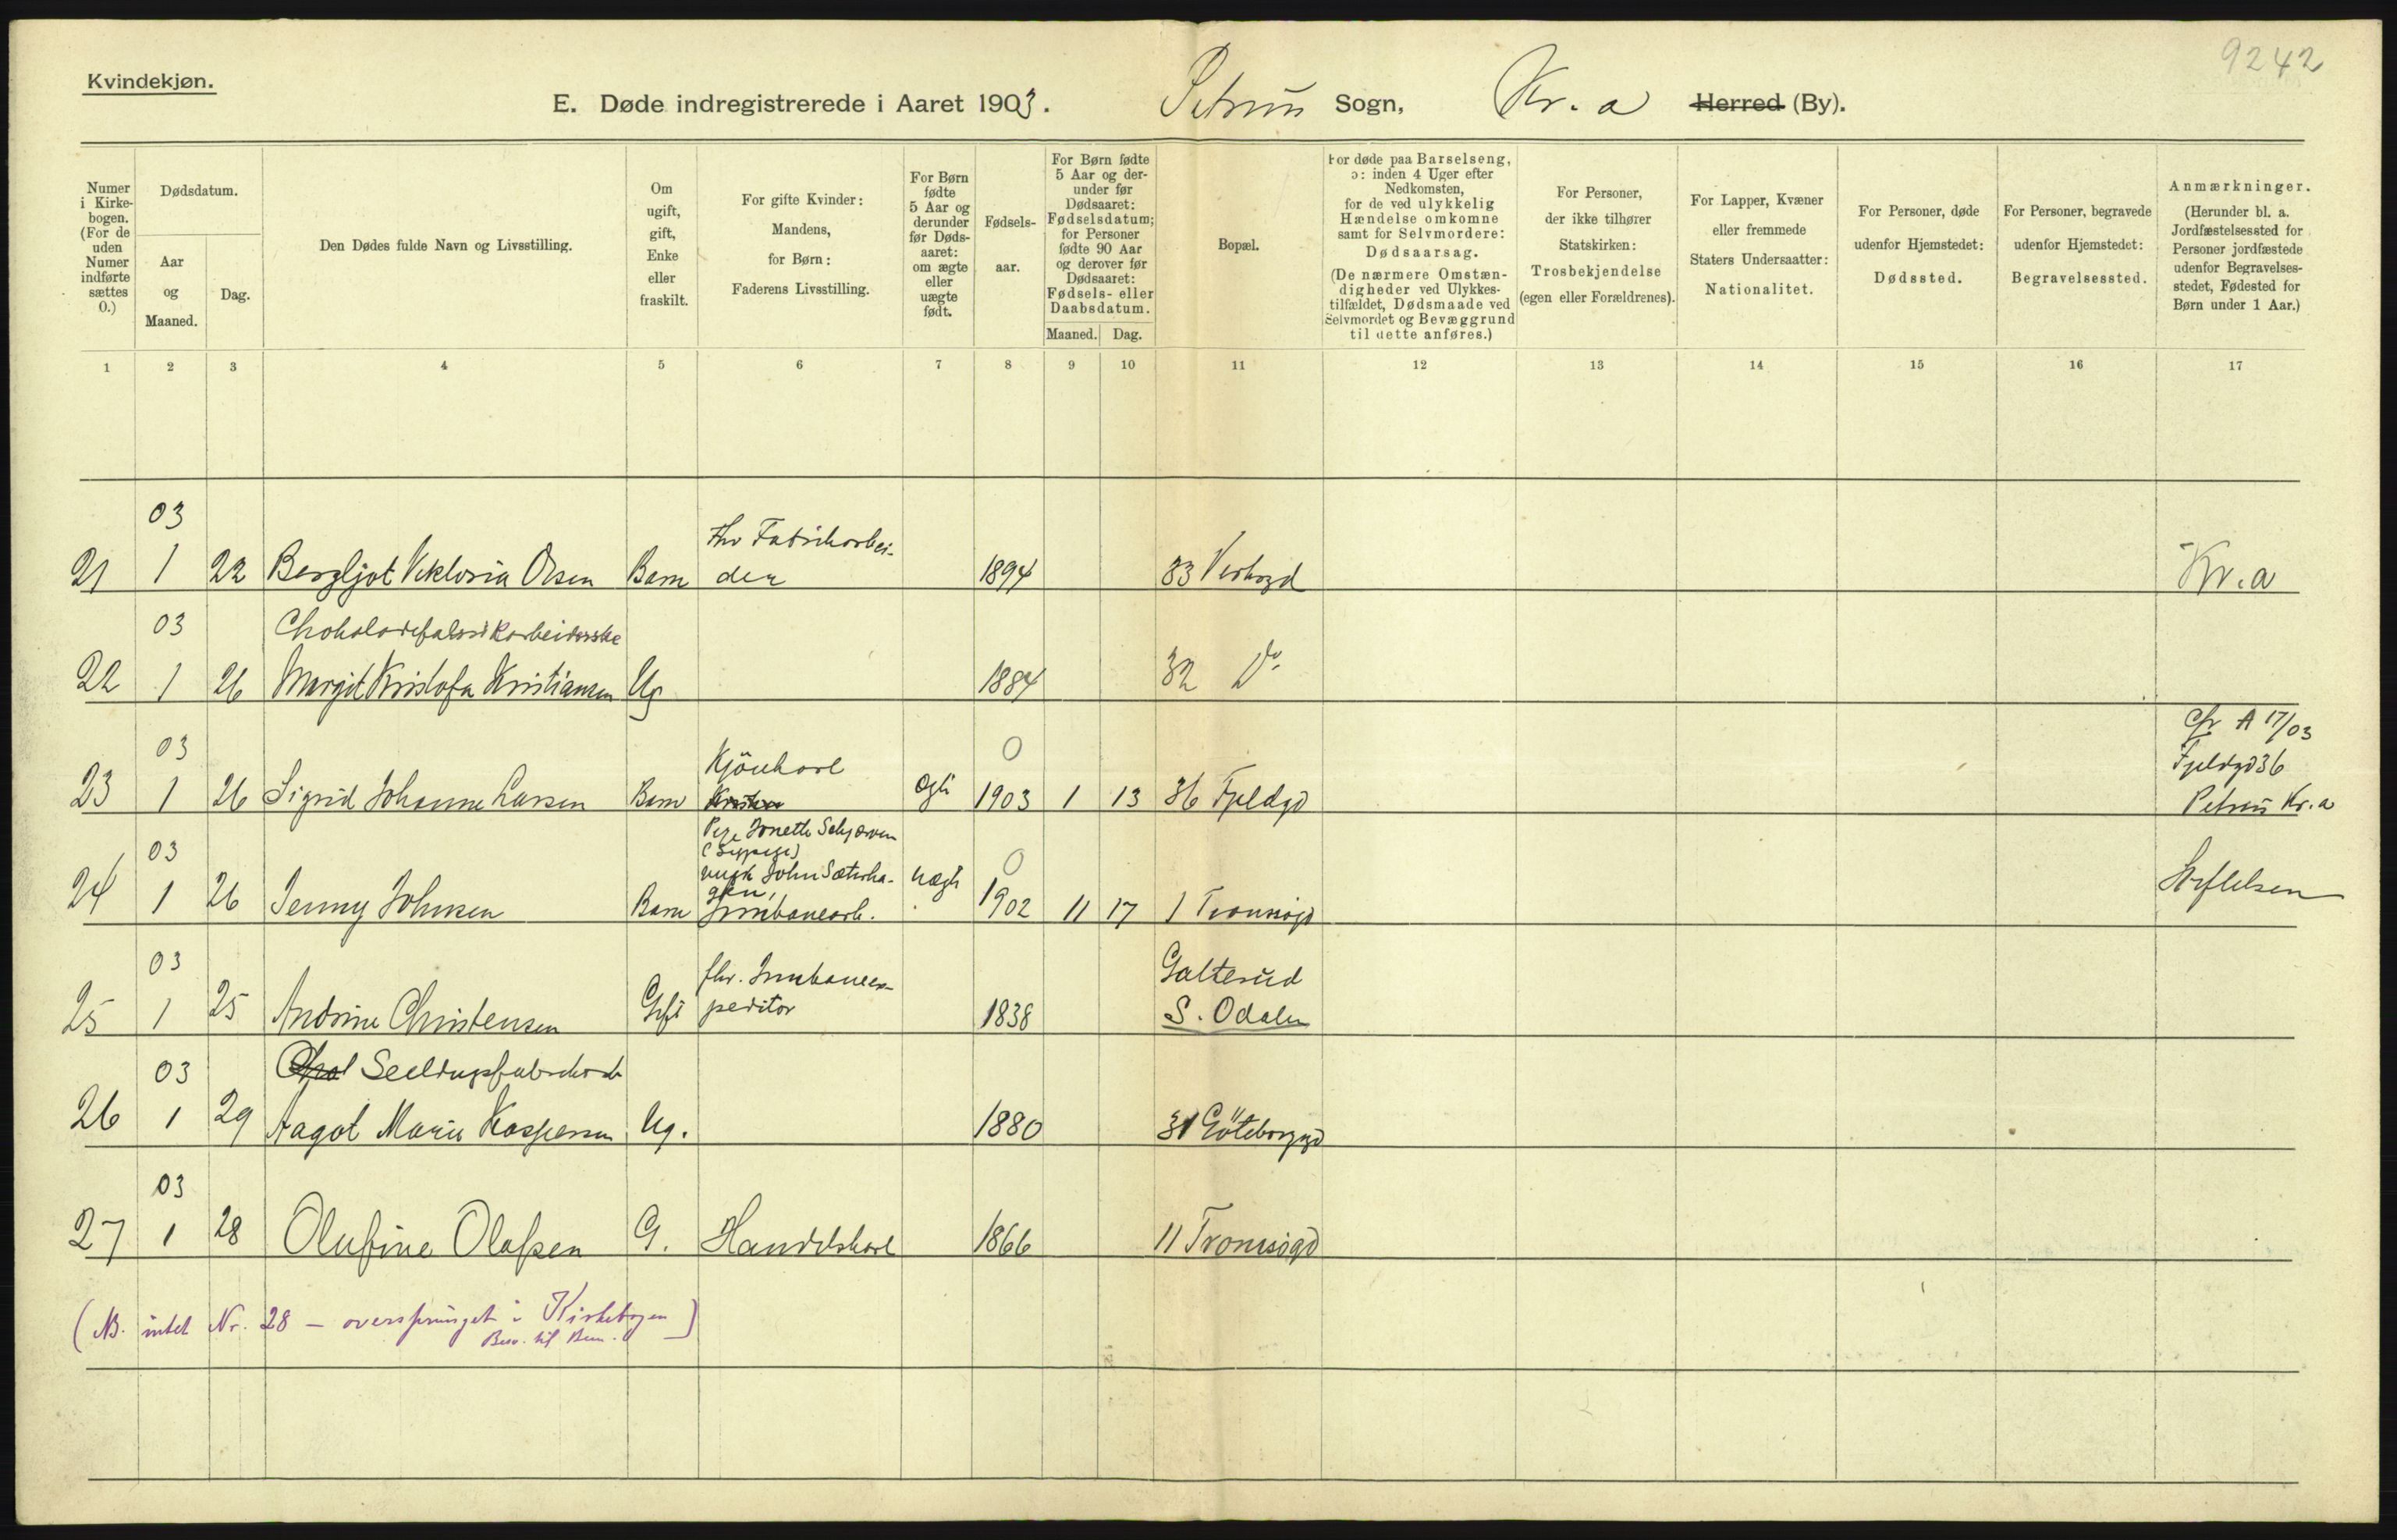 9242
Kvindekjøn.
E. Døde indregistrerede i Aaret 1903. Petrus Sogn, Kr.a Herred (By).
Numer i Kirkebogen. (For de uden Numer indførte sættes 0.)
Dødsdatum.
Aar og Maaned.
Dag.
Den Dødes fulde Navn og Livsstilling.
Om ugift, gift, Enke eller fraskilt.
For gifte Kvinder: Mandens, for Børn: Faderens Livsstilling.
For Børn fødte 5 Aar og derunder før Dødsaaret: om ægte eller uægte født.
Fødselsaar.
For Børn fødte 5 Aar og derunder før Dødsaaret: Fødselsdatum; for Personer fødte 90 Aar og derover før Dødsaaret: Fødsels- eller Daabsdatum.
Maaned. Dag.
Bopæl.
For døde paa Barselseng, ɔ: inden 4 Uger efter Nedkomsten, for de ved ulykkelig Hændelse omkomne samt for Selvmordere: Dødsaarsag. (De nærmere Omstændigheder ved Ulykkestilfældet, Dødsmaade ved Selvmordet og Bevæggrund til dette anføres.)
For Personer, der ikke tilhører Statskirken: Trosbekjendelse (egen eller Forældrenes).
For Lapper, Kvæner eller fremmede Staters Undersaatter: Nationalitet.
For Personer, døde udenfor Hjemstedet: Dødssted.
For Personer, begravede udenfor Hjemstedet: Begravelsessted.
Anmærkninger. (Herunder bl. a. Jordfæstelsessted for Personer jordfæstede udenfor Begravelsesstedet, Fødested for Børn under 1 Aar.)
1 2 3 4 5 6 7 8 9 10 11 12 13 14 15 16 17
03
Fabrikarbei-
21 1 22 Bergljot Viktoria Olsen Barn der 1894 33 Verksgd Kr.a
03 Chokoladefabrikarbeiderske
22 1 26 Margit Kristofa Kristiansen Ug 1884 32 Do
Cfr A 17/03
03 Kjörekarl 0 Fjeldgd 36
23 1 26 Sigrid Johanne Larsen Barn Ægte 1903 1 13 36 Fjeldgd Petrus Kr.a
Pige Jonette
03 John Sæterha- uægte 0
gen,
24 1 26 Jenny Johnsen Barn Jernbanearb. 1902 11 17 1 Tromsøgd Stiftelsen
03 fhv. Jernbaneex- Galterud
25 1 25 Andrine Christensen Gift peditor 1838 S. Odalen
03
26 1 29 Aagot Marie Kaspersen Ug. 1880 31 Göteborggd
03
27 1 28 Olufine Olafsen G. Handelskarl 1866 11 Tromsøgd
(NB. intet Nr. 28 — oversprunget i Kirkebogen)